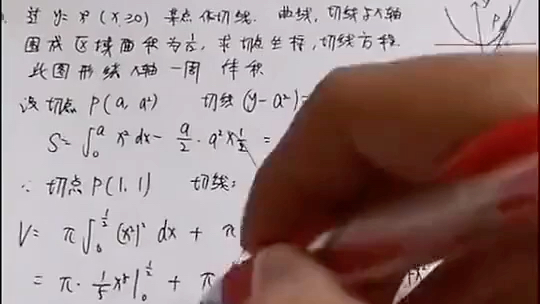 过 y = x² (x≥0) 某点作切线. 曲线, 切线与x轴
围成区域面积为 1/12, 求切点坐标, 切线方程.
此图形绕x轴一周 体积
设切点 P(a, a²) 切线 (y-a²)=
S = ∫₀ᵃ x² dx - a/2 · a² × 1/2 =
∴ 切点 P(1, 1) 切线:
V = π ∫₀^{1/2} (x²)² dx + π
= π · 1/5 x⁵ |₀^{1/2} + π
P